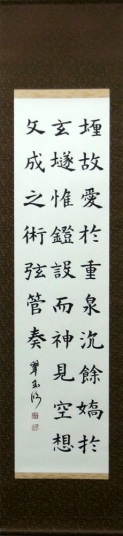 堙故愛於重泉沉餘嬌於
玄璲惟鐙設而神見空想
文成之術弦管奏